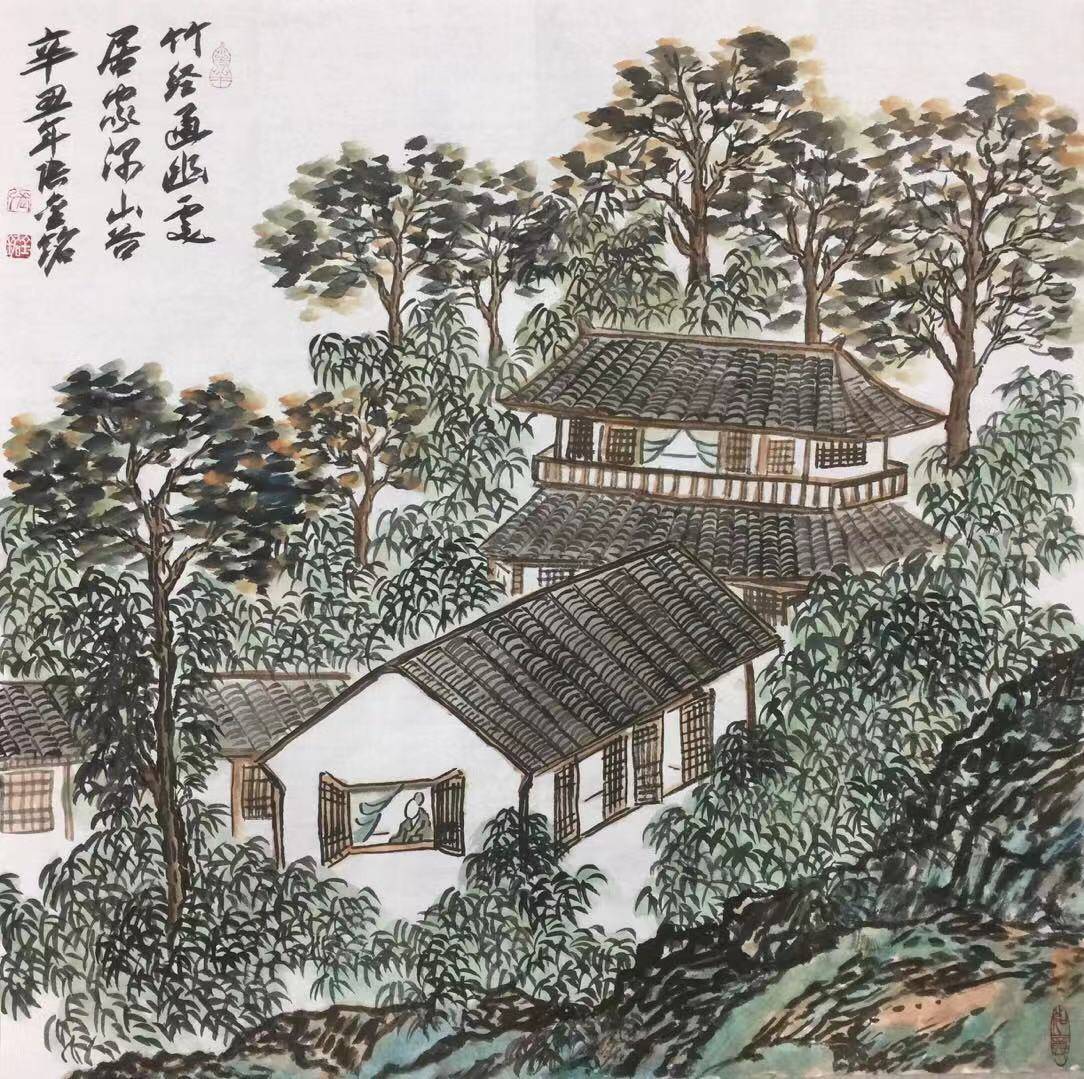 竹经通幽處
居家深山谷
辛丑年张铭